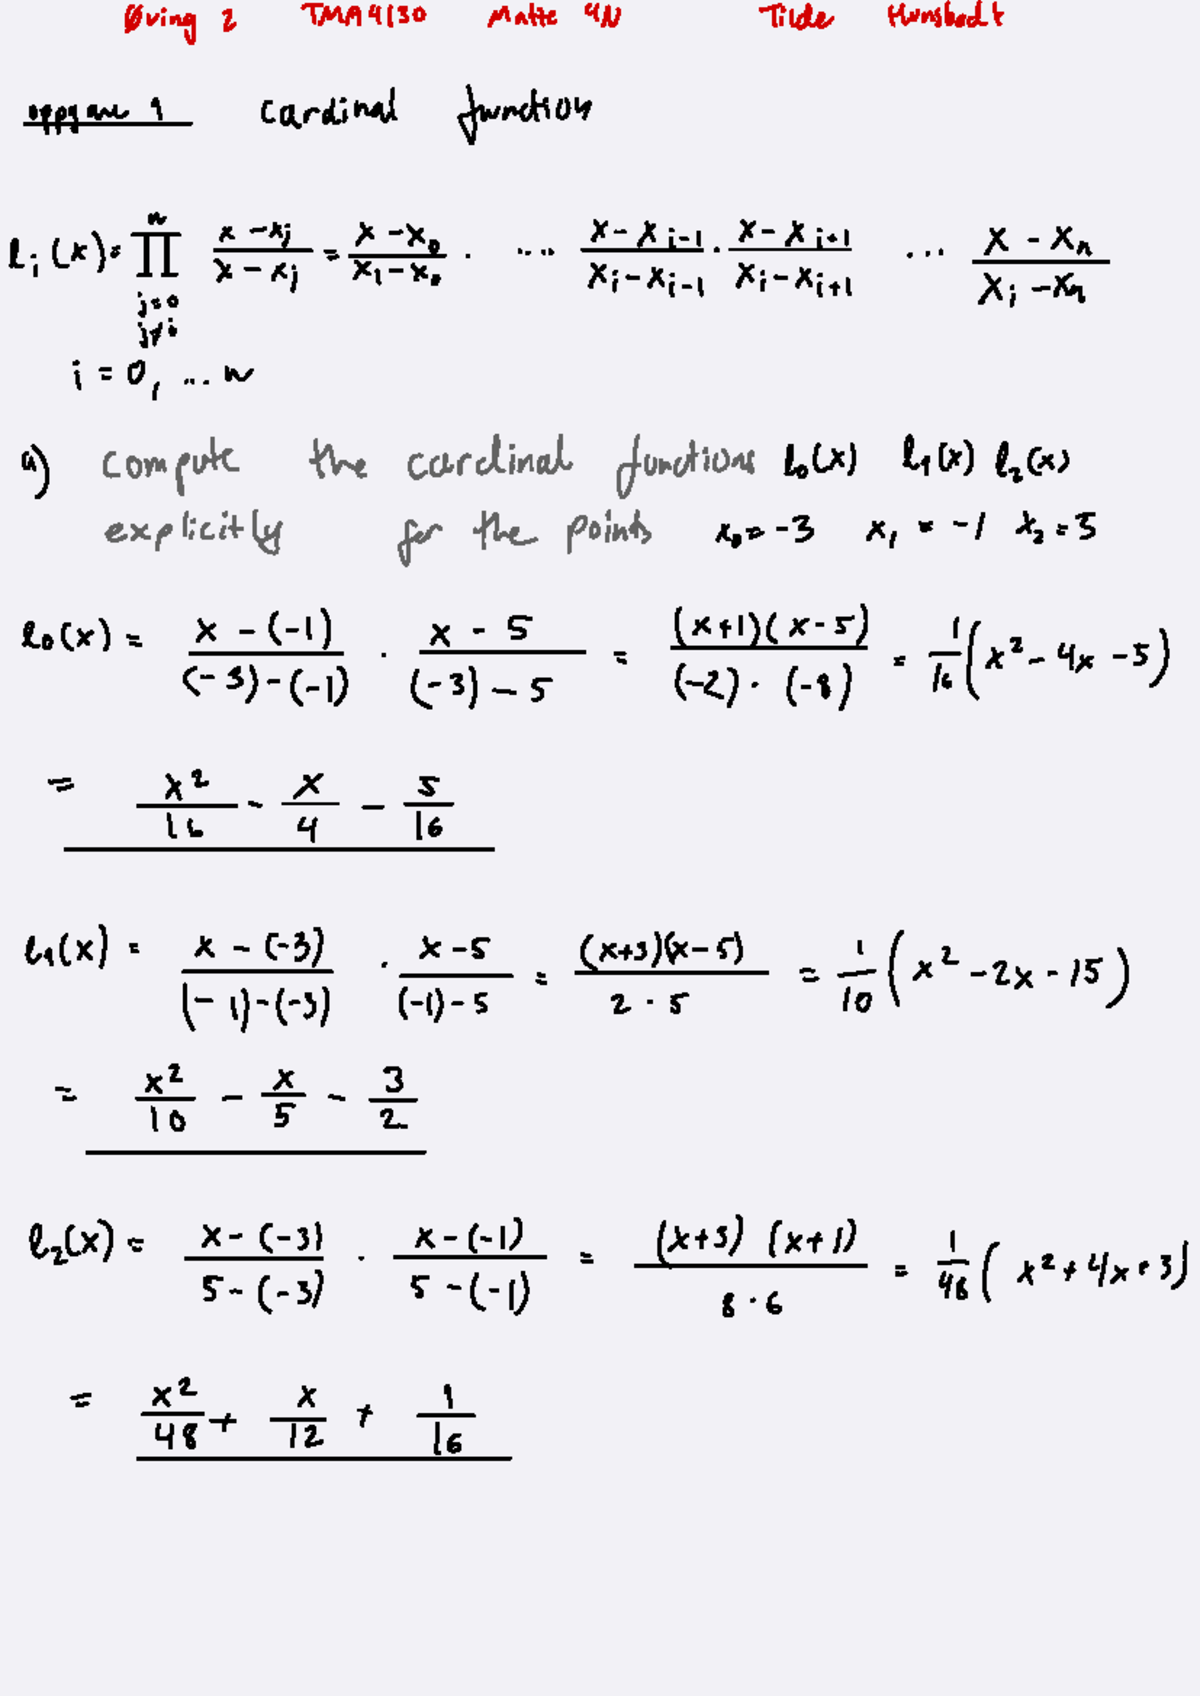 Øving 2 TMA4130 Matte 4N Tilde Hunsbedt
oppgave 1 Cardinal function
ℓᵢ(x) = ∏ⁿ_{j=0, j≠i} (x - xⱼ)/(x - xⱼ) = (x - x₀)/(x₁ - x₀) · ... (x - xᵢ₋₁)/(xᵢ - xᵢ₋₁) · (x - xᵢ₊₁)/(xᵢ - xᵢ₊₁) ... (x - xₙ)/(xᵢ - xₙ)
i = 0, ... n
a) compute the cardinal functions ℓ₀(x) ℓ₁(x) ℓ₂(x)
explicitly for the points x₀ = -3 x₁ = -1 x₂ = 5
ℓ₀(x) = (x - (-1))/((-3) - (-1)) · (x - 5)/((-3) - 5) = ((x+1)(x-5))/((-2) · (-8)) = 1/16 (x² - 4x - 5)
= x²/16 - x/4 - 5/16
ℓ₁(x) = (x - (-3))/((-1) - (-3)) · (x - 5)/((-1) - 5) = ((x+3)(x-5))/(2 · 5) = 1/10 (x² - 2x - 15)
= x²/10 - x/5 - 3/2
ℓ₂(x) = (x - (-3))/(5 - (-3)) · (x - (-1))/(5 - (-1)) = ((x+3)(x+1))/(8 · 6) = 1/48 (x² + 4x + 3)
= x²/48 + x/12 + 1/16